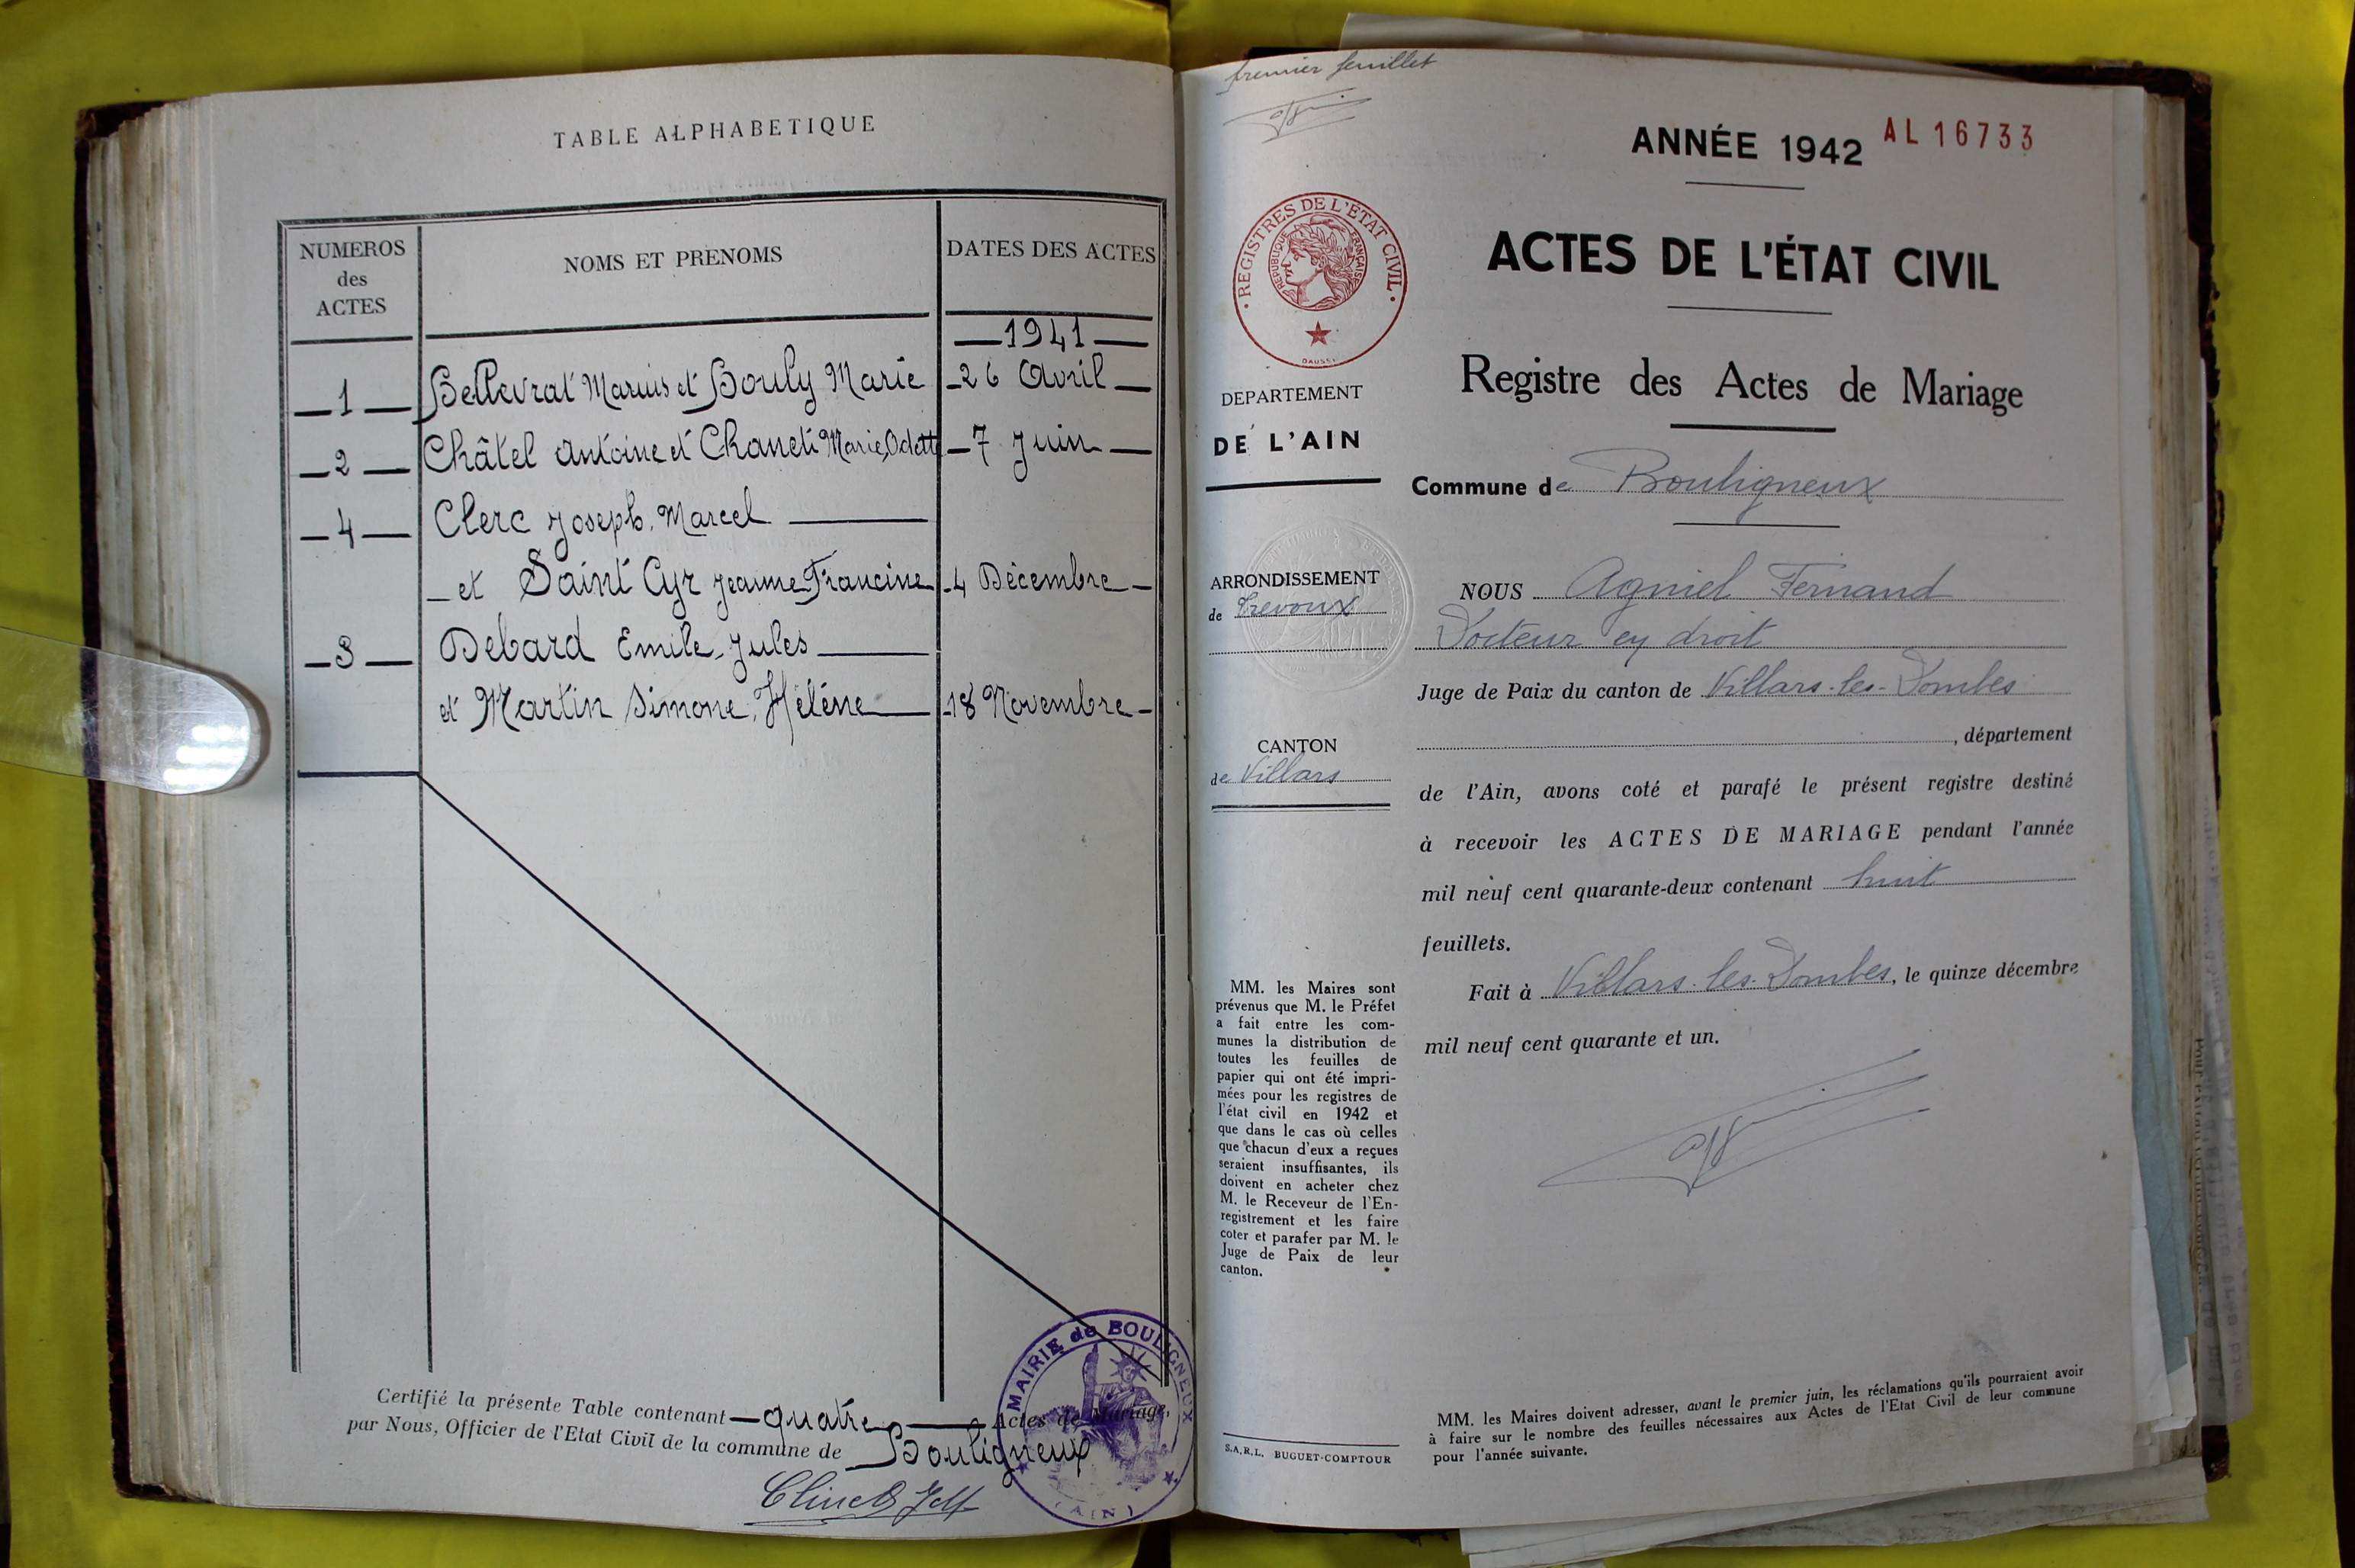 TABLE ALPHABETIQUE
NUMEROS
des
ACTES
NOMS ET PRENOMS
DATES DES ACTES
—1941—
—1— Bellevrat Marius et Bouly Marie —26 Avril—
—2— Châtel Antoine et Chanel Marie, Odette —7 Juin—
—4— Clerc Joseph, Marcel
—et Saint Cyr Jeanne Francine —4 Décembre—
—3— Debard Emile, Jules
et Martin Simone, Hélène —18 Novembre—
Certifié la présente Table contenant —quatre— Actes de Mariage,
par Nous, Officier de l'Etat Civil de la commune de Bouligneux
MAIRIE de BOULIGNEUX
(AIN)
premier feuillet
ANNÉE 1942
AL 16733
REGISTRES DE L'ÉTAT CIVIL
REPUBLIQUE FRANÇAISE
ACTES DE L'ÉTAT CIVIL
Registre des Actes de Mariage
DEPARTEMENT
DE L'AIN
Commune de Bouligneux
ARRONDISSEMENT
de Trevoux
CANTON
de Villars
NOUS Agniel Fernand
Docteur en droit
Juge de Paix du canton de Villars-les-Dombes
, département
de l'Ain, avons coté et parafé le présent registre destiné
à recevoir les ACTES DE MARIAGE pendant l'année
mil neuf cent quarante-deux contenant huit
feuillets.
Fait à Villars-les-Dombes, le quinze décembre
mil neuf cent quarante et un.
MM. les Maires sont
prévenus que M. le Préfet
a fait entre les com-
munes la distribution de
toutes les feuilles de
papier qui ont été impri-
mées pour les registres de
l'état civil en 1942 et
que dans le cas où celles
que chacun d'eux a reçues
seraient insuffisantes, ils
doivent en acheter chez
M. le Receveur de l'En-
registrement et les faire
coter et parafer par M. le
Juge de Paix de leur
canton.
S.A.R.L. BUGUET-COMPTOUR
MM. les Maires doivent adresser, avant le premier juin, les réclamations qu'ils pourraient avoir
à faire sur le nombre des feuilles nécessaires aux Actes de l'Etat Civil de leur commune
pour l'année suivante.